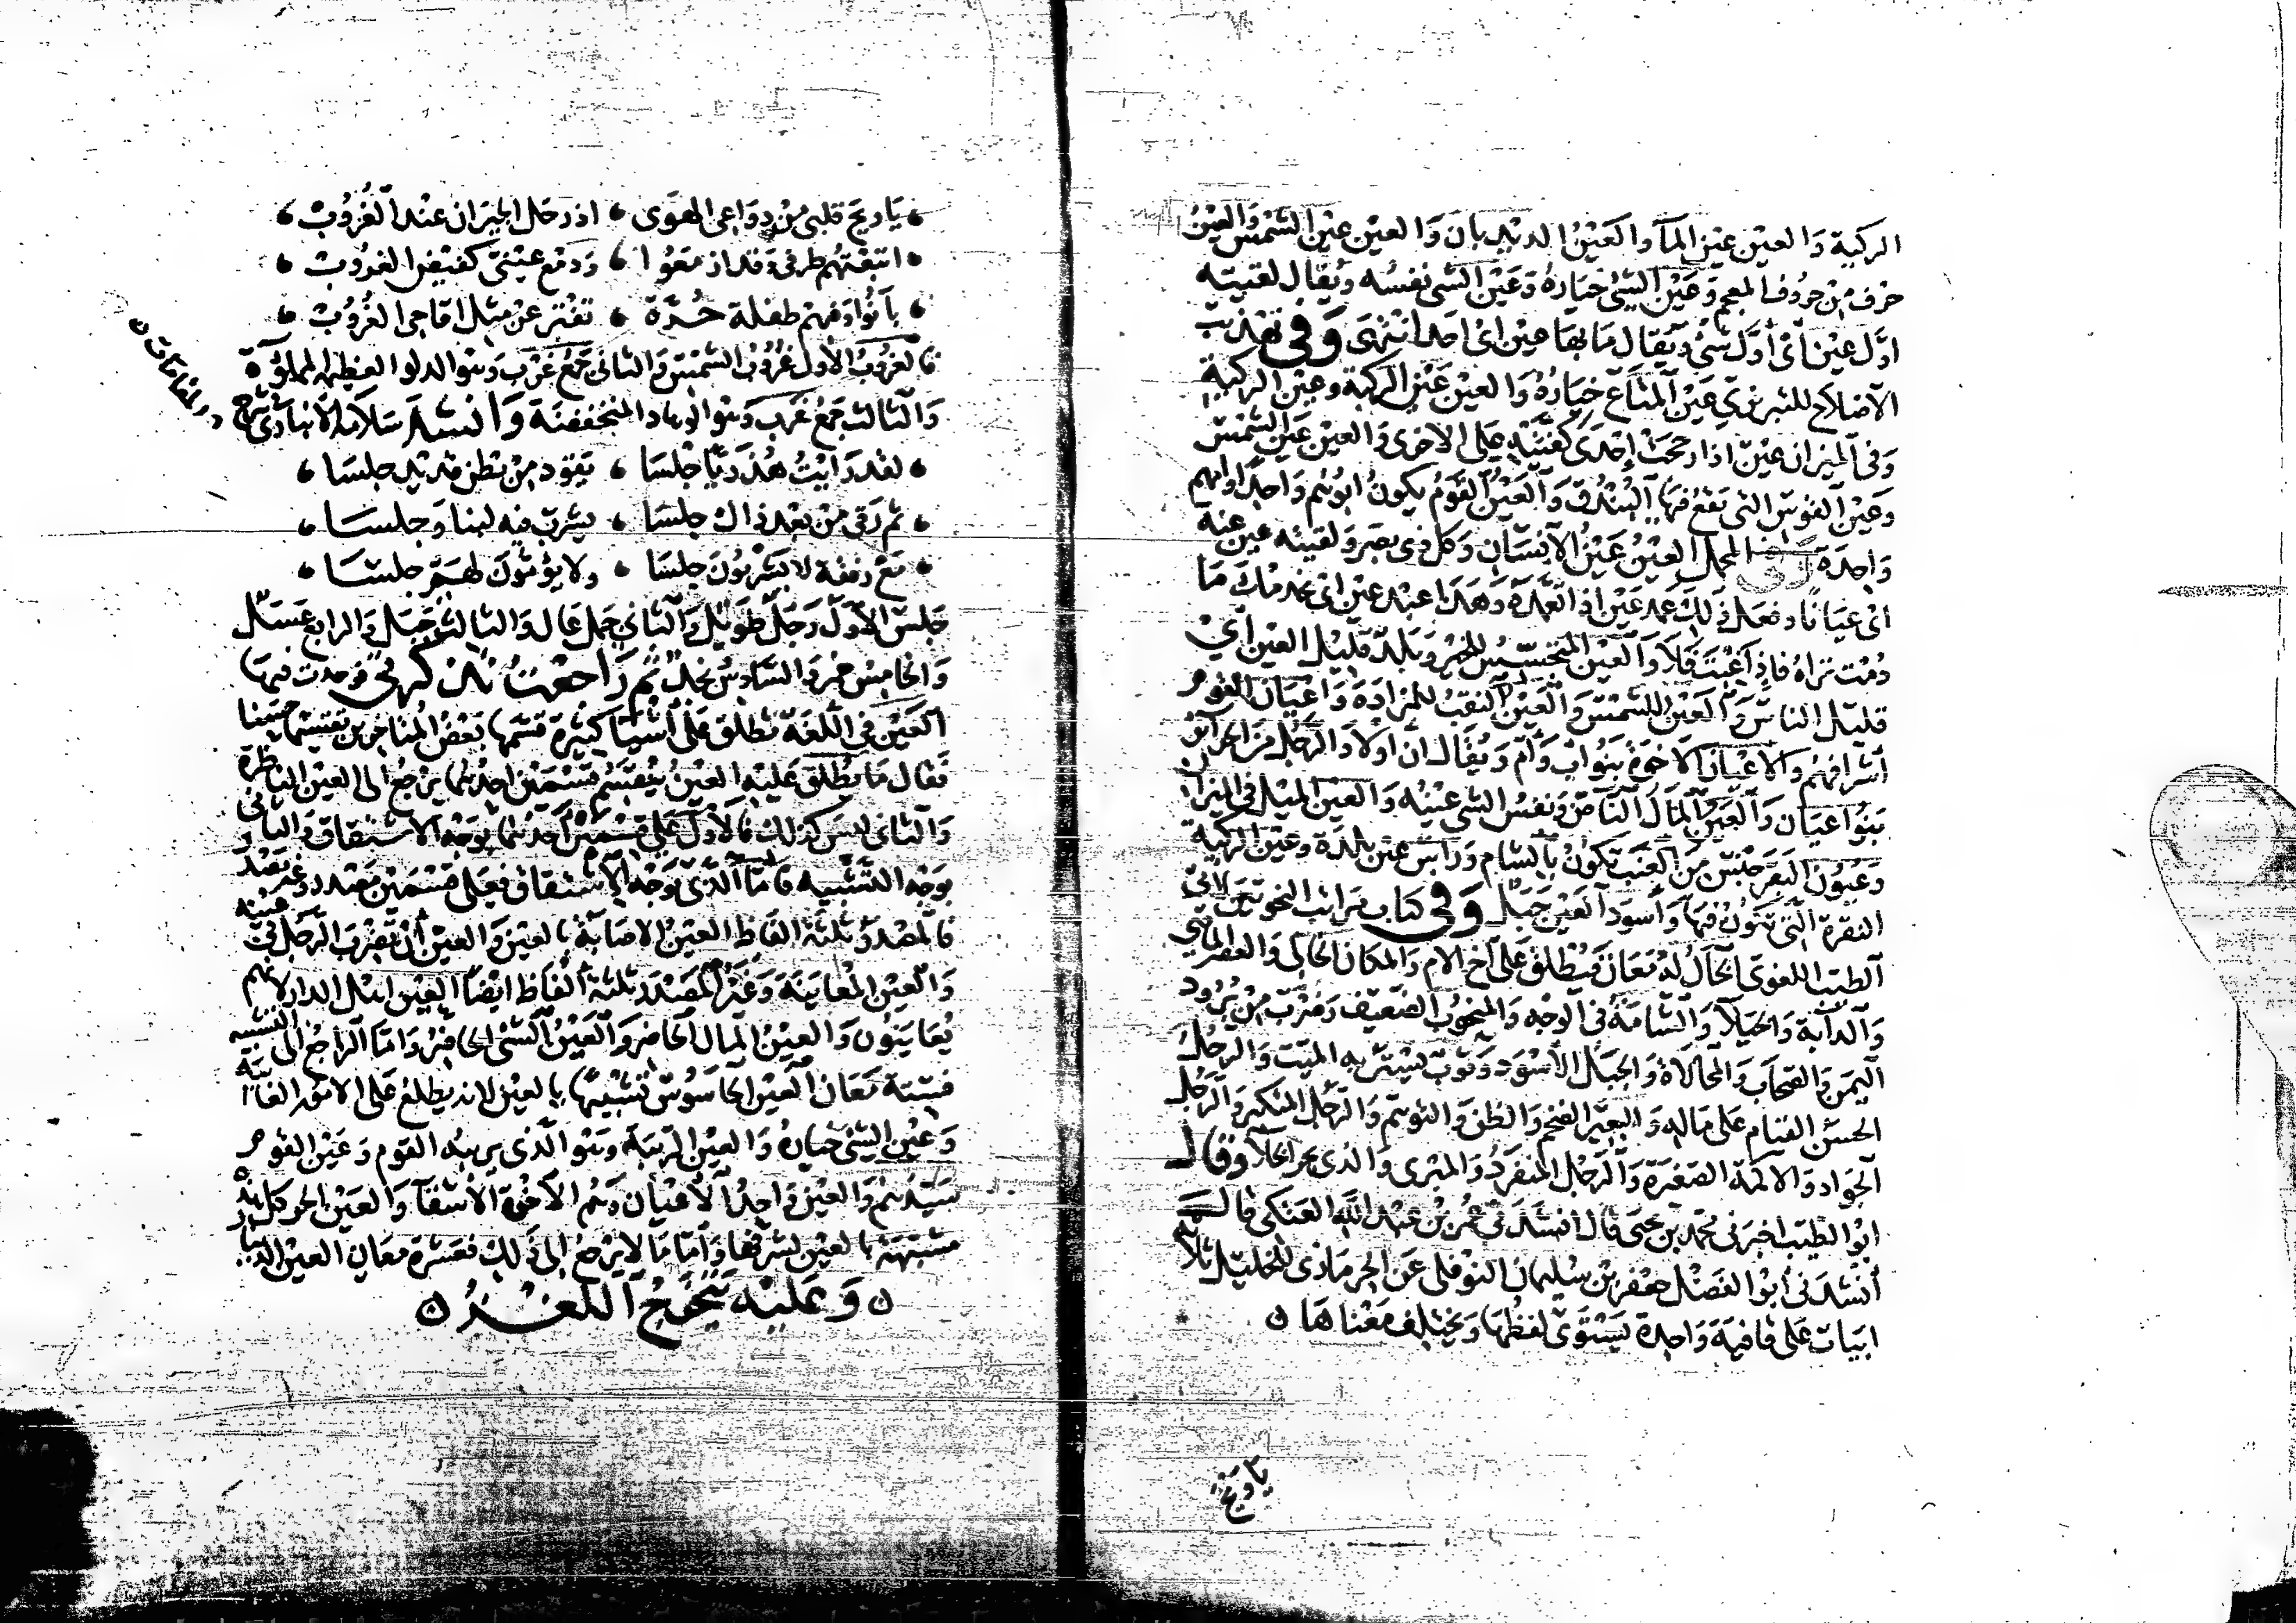 الركية والعين عين الماء والعين الديدبان والعين عين الشمس والعين
حرف من حروف المعجم وعين الشئ خياره وعين الشئ نفسه ويقال لقيته
اول عين اى اول شئ ويقال ما بها عين اى احد انتهى وفى تهذيب
الاصلاح للتبريزى عين المتاع خياره والعين عين الركبة وعين الركية
وفى الميزان عين اذا رجحت احدى كفتيه على الاخرى والعين عين الشمس
وعين القوس التى تقع فيها البندق والعين القوم يكون ابوهم واحد وامهم
واحدة وفى المجمل العين عين الانسان وكل ذى بصر ولقيته عين عنة
اى عيانا وفعل ذلك عمد عين اذا تعمده وهذا عبد عين اى يخدمك ما
دمت تراه فاذا غبت فلا والعين المتجسس للخبر وبلد قليل العين اى
قليل الناس والعين للشمس والعين النقب للمزادة واعيان القوم
اشرافهم والاعيان الاخوة بنو اب وام ويقال ان اولاد الرجل من الحرائر
بنو اعيان والعين المال الناض ونفس الشئ عينه والعين الميل فى الميزان
وعيون البقر جنس من العنب تكون بالشام وراس عين بلدة وعين الركبة
النقرة التى تكون فيها واسود العين جبل وفى كتاب مراتب النحويين لابى
الطيب اللغوى الخال له معان فيطلق على اخ الام والمكان الخالى والعصر الماضى
والدابة والخيلاء والشامة فى الوجه والمنخوب الضعيف وضرب من برود
اليمن والسحاب والمخالاة والجبل الاسود وثوب يستر به الميت والرجل
الحسن القيام على ماله والبعير الضخم والظن والتوهم والرجل المتكبر والرجل
الجواد والاكمة الصغيرة والرجل المنفرد والمبرى والذى يجز الخلا وقال
ابو الطيب اخبرنى محمد بن يحيى قال انشدنى عمر بن عبد الله العتكى قال
انشدنى ابو الفضل جعفر بن سليمان النوفلى عن الجرمازى للخليل ثلاثة
ابيات على قافية واحدة يستوى لفظها ويختلف معناها
يا ويح
يا ويح قلبى من دواعى الهوى اذ رحل الجيران عند الغروب
اتبعتهم طرفى وقد ازمعوا ودمع عينى كفيض الغروب
بانوا وفيهم طفلة حرة تفتر عن مثل اقاحى الغروب
فالغروب الاول غروب الشمس والثانى جمع غرب وهو الدلو العظيمة المملوءة
والثالث جمع غرب وهو الوهاد المنخفضة وانشد سلامة الانبارى فى شرح
المقامات
لقد رايت هذريا جلسا يقود من بطن قديد جلسا
ثم رقى من بعد ذاك جلسا يشرب فيه لبنا وجلسا
مع رفقة لا يشربون جلسا ولا يؤمون لهم جلسا
جلس الاول رجل طويل والثانى جمل عال والثالث جبل والرابع عسل
والخامس خمر والسادس نجد ثم راجعت تذكرتى فوجدت فيها
العين فى اللغة تطلق على اشياء كثيرة قسمها بعض المتاخرين تقسيما حسنا
فقال ما يطلق عليه العين ينقسم قسمين احدهما يرجع الى العين الناظرة
والثانى ليس كذلك فالاول على قسمين احدهما بوجه الاشتقاق والثانى
بوجه التشبيه فاما الذى بوجه الاشتقاق فعلى قسمين مصدر وغير مصدر
فالمصدر ثلثة الفاظ العين الاصابة بالعين والعين ان تضرب الرجل فى عينه
والعين المعاينة وغير المصدر ثلثة الفاظ ايضا العين اهل الدار لانهم
يعاينون والعين المال الحاضر والعين الشئ الحاضر واما الراجع الى التشبيه
فستة معان العين الجاسوس تشبيها بالعين لانه يطلع على الامور الغائبة
وعين الشئ خياره والعين الربيئة وهو الذى يربئ القوم وعين القوم
سيدهم والعين واحد الاعيان وهم الاخوة الاشقاء والعين الحر كل هذه
مشبهة بالعين لشرفها واما ما لا يرجع الى ذلك فعشرة معان العين الدينار
وعليه يتخرج اللغز